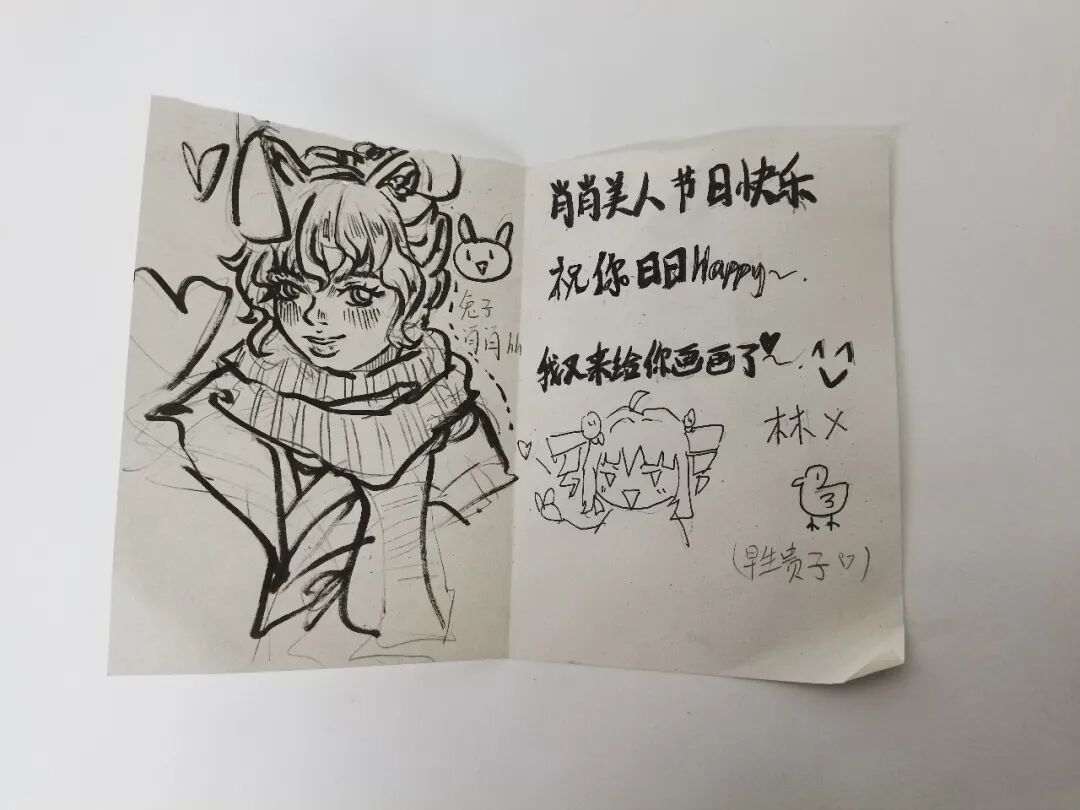 兔子
肖肖
肖肖美人节日快乐
祝你日日Happy~.
我又来给你画画了♥~.
林乂
(早生贵子♡)